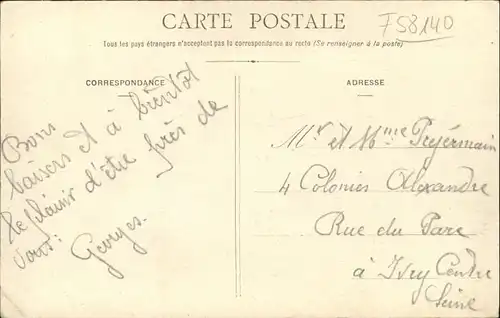 CARTE POSTALE
F58140
Tous les pays étrangers n'acceptent pas la correspondance au recto (Se renseigner à la poste)
CORRESPONDANCE
Bons
baisers et à bientôt
le plaisir d'être près de
vous.
Georges.
ADRESSE
Mr et Mme Preyermain
4 Colonies Alexandre
Rue du Parc
à Ivry Centre
Seine